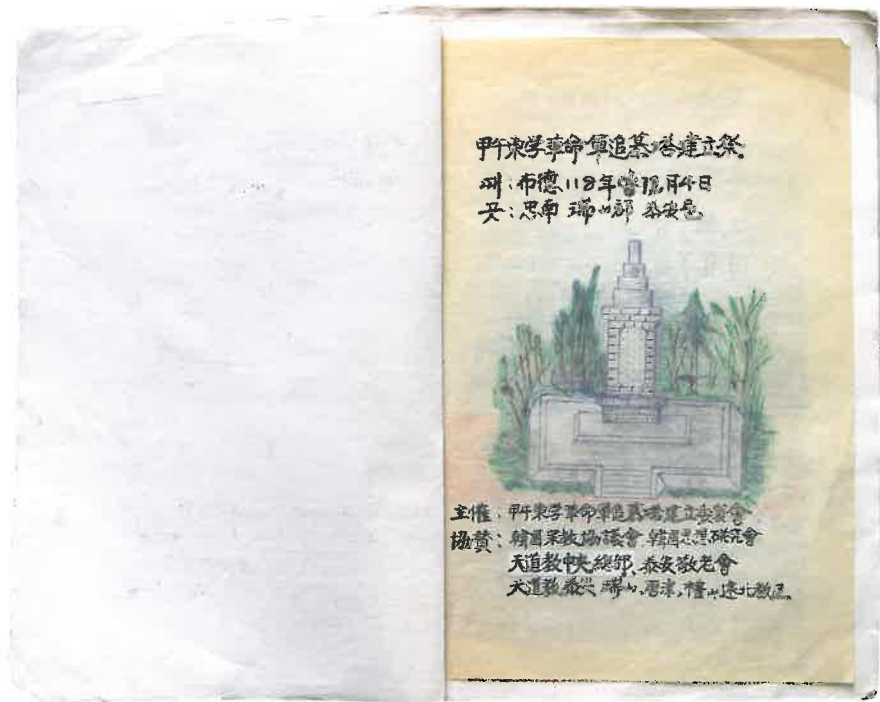 甲午東学革命軍追慕塔建立祭.
때: 布德118年 月4日
곳: 忠南 瑞山郡 泰安邑
主催: 甲午東学革命軍追慕塔建立委員會
協賛: 韓國宗敎協議會 韓國思想研究會
天道敎中央總部, 泰安敬老會
天道敎 瑞山, 唐津, 禮山 敎區